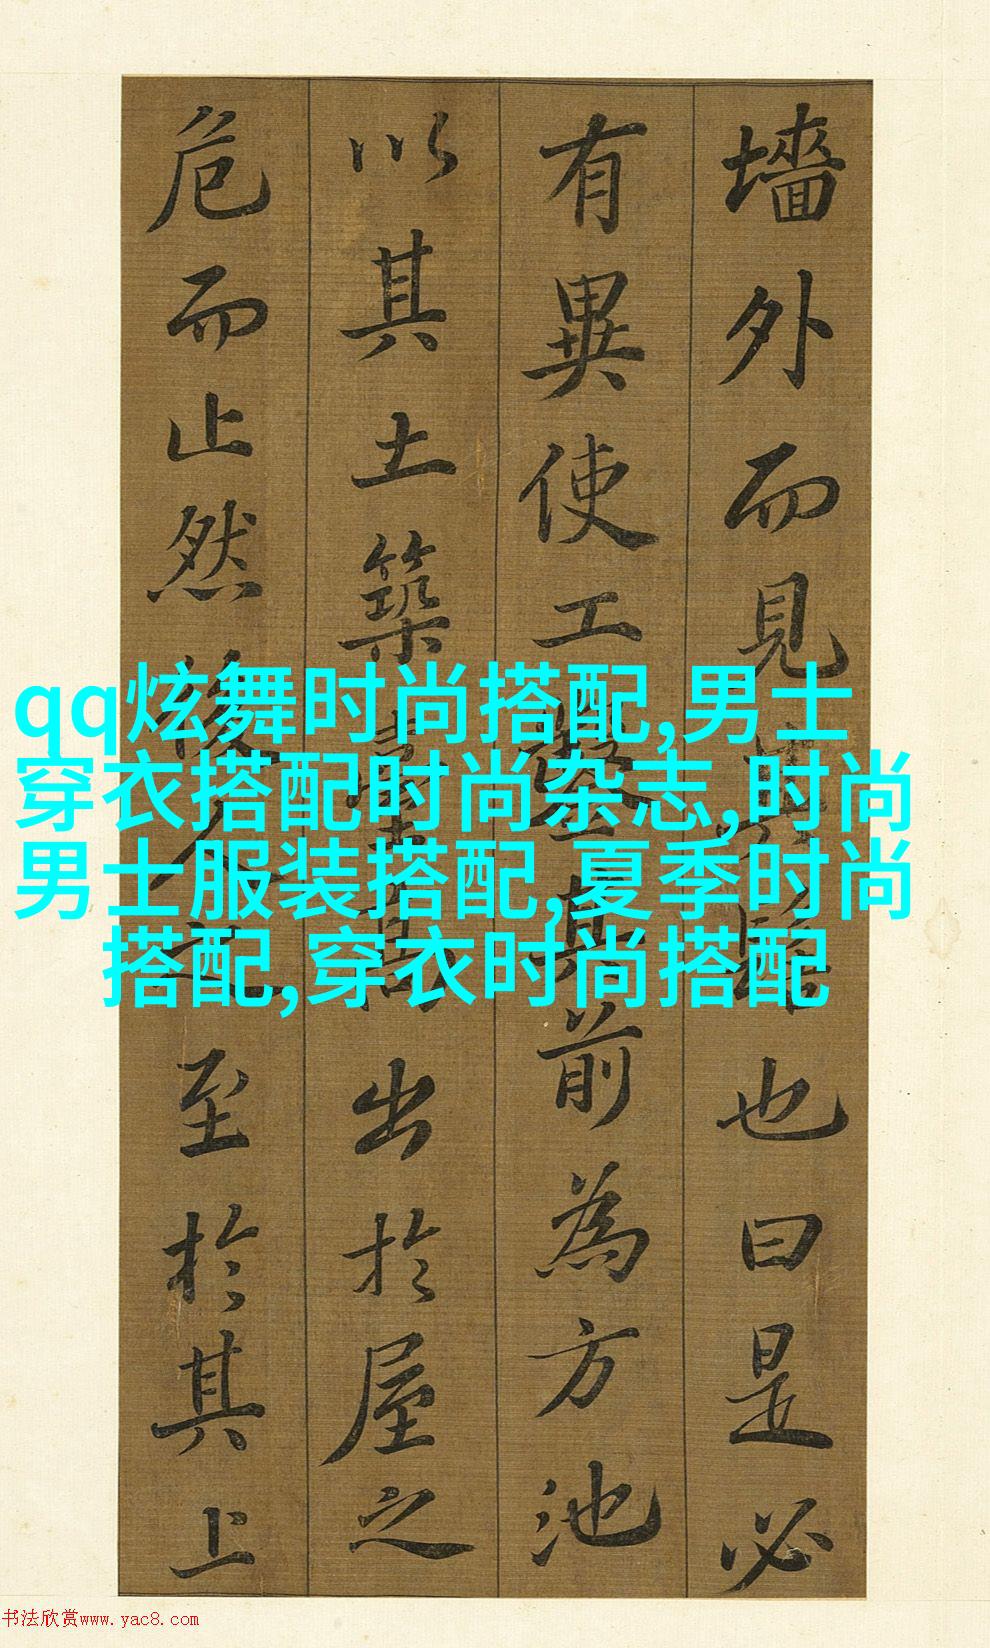 墻外而見其髻也曰是必
有異使工鑿其前為方池
以其土築臺高出於屋之
危而止然後人之至於其上
qq炫舞时尚搭配,男士
穿衣搭配时尚杂志,时尚
男士服装搭配,夏季时尚
搭配,穿衣时尚搭配
书法欣赏www.yac8.com